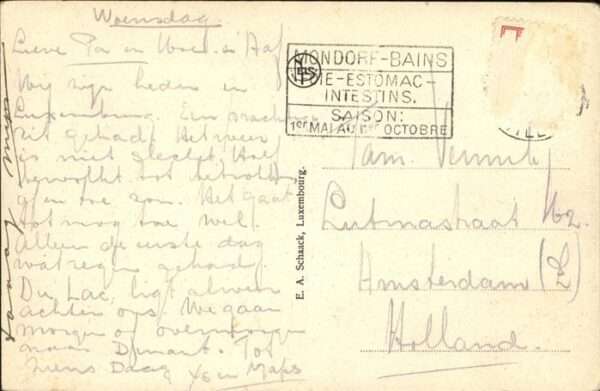 Woensdag.
Lieve Pa en
Wij zijn heden in
Luxemburg. Een prachtige
rit gehad. Het weer
is niet slecht. Half
bewolkt
en zon. Het gaat
tot nog toe wel.
Alleen de eerste dag
wat regen gehad.
Du Lac, ligt alweer
achter ons. We gaan
morgen of overmorgen
naar Dinant. Tot
ziens Daag
MONDORF-BAINS
FOIE-ESTOMAC-
INTESTINS.
SAISON:
1er MAI AU 1er OCTOBRE
VILLE
E. A. Schaack, Luxembourg.
Fam.
Lutmastraat
Amsterdam (Z)
Holland.